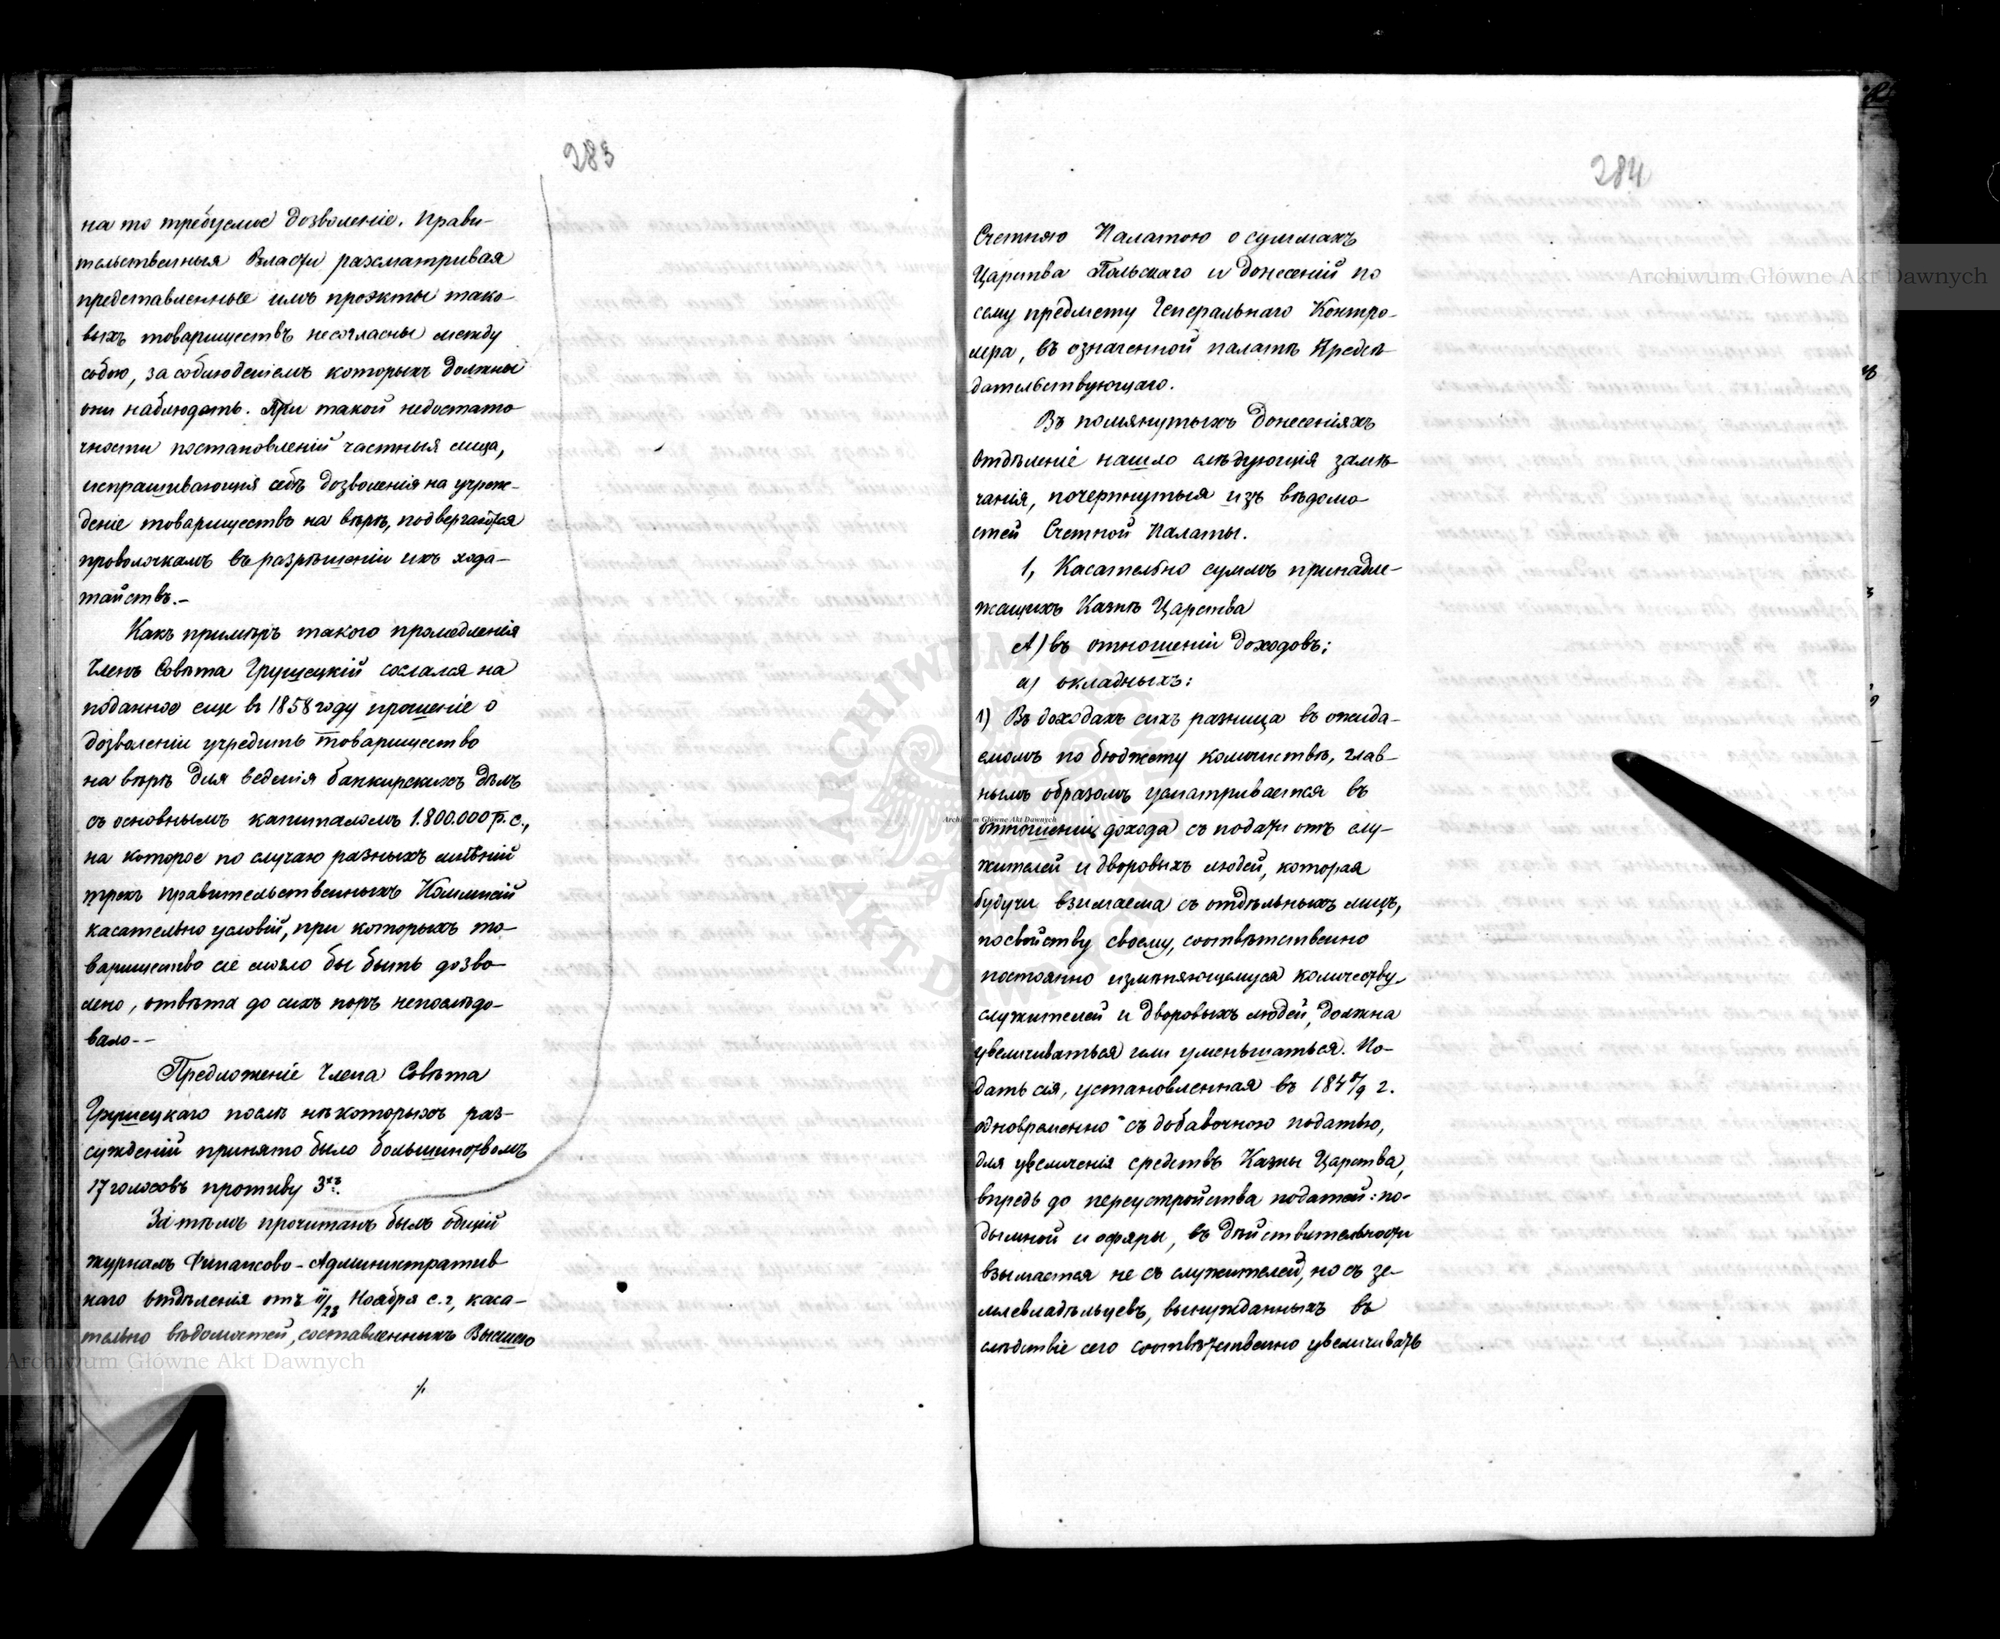 283
на то требуемое дозволеніе. Прави-
тельственныя Власти разсматривая
представленные имъ проэкты тако-
выхъ товариществъ несогласны между
собою, за соблюденіемъ которыхъ должны
они наблюдать. При такой недостато-
чности постановленій частныя лица,
испрашивающія себѣ дозволенія на учреж-
деніе товариществъ на вѣрѣ, подвергаются
проволочкамъ въ разрѣшеніи ихъ хода-
тайствъ.-
Какъ примѣръ такого промедленія
Членъ Совѣта Грушецкій сослался на
поданное еще въ 1858 году прошеніе о
дозволеніи учредить товарищество
на вѣрѣ для веденія банкирскихъ дѣлъ
съ основнымъ капиталомъ 1.800.000 р. с.,
на которое по случаю разныхъ мнѣній
трехъ Правительственныхъ Коммисій
касательно условій, при которыхъ то-
варищество сіе могло бы быть дозво-
лено, отвѣта до сихъ поръ непослѣдо-
вало--
Предложеніе Члена Совѣта
Грушецкаго послѣ нѣкоторыхъ раз-
сужденій принято было большинствомъ
17 голосовъ противу 3хъ.
За тѣмъ прочитанъ былъ общій
журналъ Финансово-Административ
наго отдѣленія отъ 11/23 Ноября с. г, каса-
тельно вѣдомостей, составленныхъ Высшею
./.
284
Счетною Палатою о суммахъ
Царства Польскаго и донесеній по
сему предмету Генеральнаго Контро-
лера, въ означенной палатѣ Предсѣ
дательствующаго.
Въ помянутыхъ донесеніяхъ
отдѣленіе нашло слѣдующія замѣ-
чанія, почерпнутыя изъ вѣдомо-
стей Счетной Палаты.
1, Касательно суммъ принадле-
жащихъ Казнѣ Царства
А) въ отношеніи доходовъ;
а) окладныхъ:
1) Въ доходахъ сихъ разница въ ожида-
емомъ по бюджету количествѣ, глав-
нымъ образомъ усматривается въ
отношеніи дохода съ подати отъ слу-
жителей и дворовыхъ людей, которая
будучи взимаема съ отдѣльныхъ лицъ,
по свойству своему, соотвѣтственно
постоянно измѣняющемуся количеству
служителей и дворовыхъ людей, должна
увеличиваться или уменьшаться. По-
дать сія, установленная въ 184 8/9 г.
одновременно съ добавочною податью,
для увеличенія средствъ Казны Царства,
впредь до переустройства податей: по-
дымной и офяры, въ дѣйствительности
взымается не съ служителей, но съ зе-
млевладѣльцевъ, вынужданныхъ въ
слѣдствіе сего соотвѣтственно увеличивать
Archiwum Główne Akt Dawnych
Archiwum Główne Akt Dawnych
Archiwum Główne Akt Dawnych